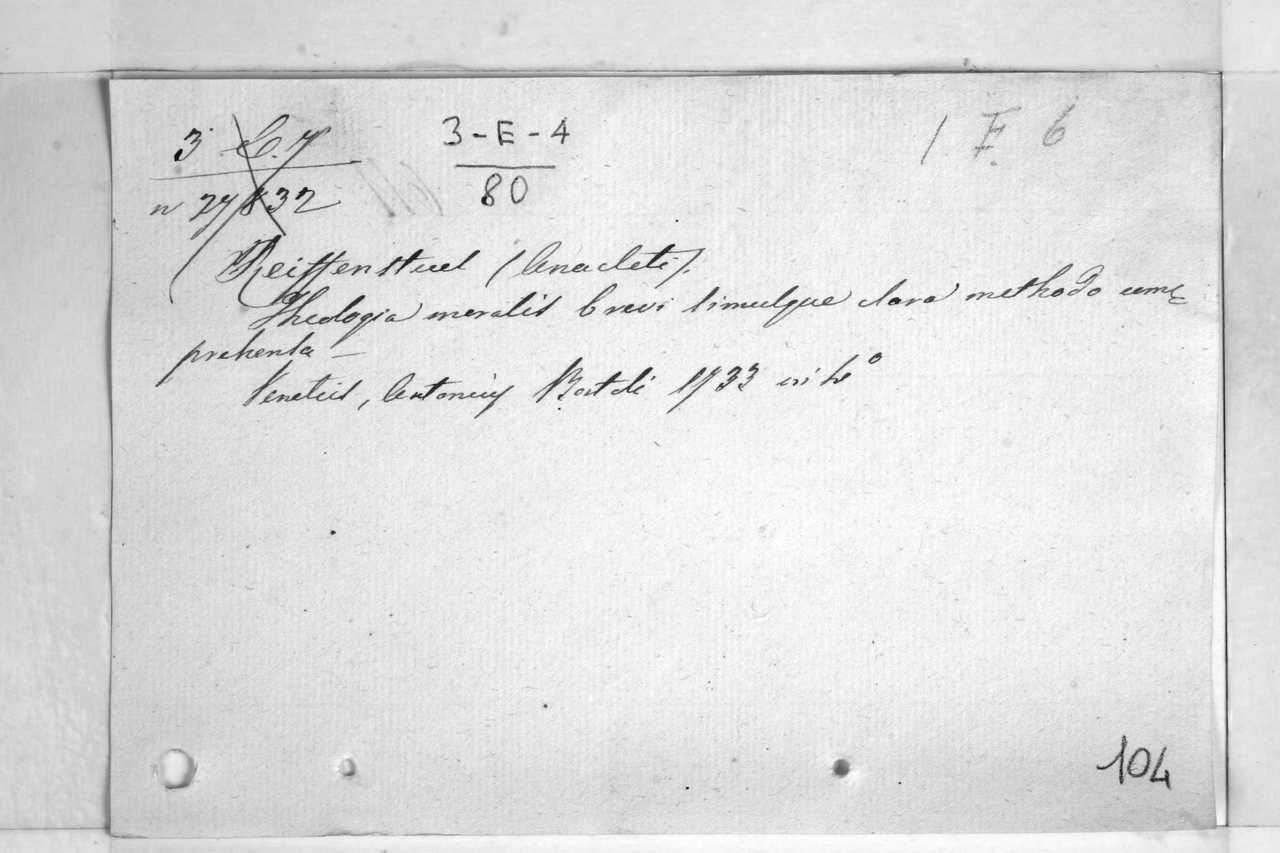 3 C. 7
3-E-4
1 F. 6
n 27832
80
Reiffenstuel (Anacleti).
Theologia moralis brevi simulque clara methodo com=
prehensa —
Venetiis, Antonius Bortoli 1733 in
104